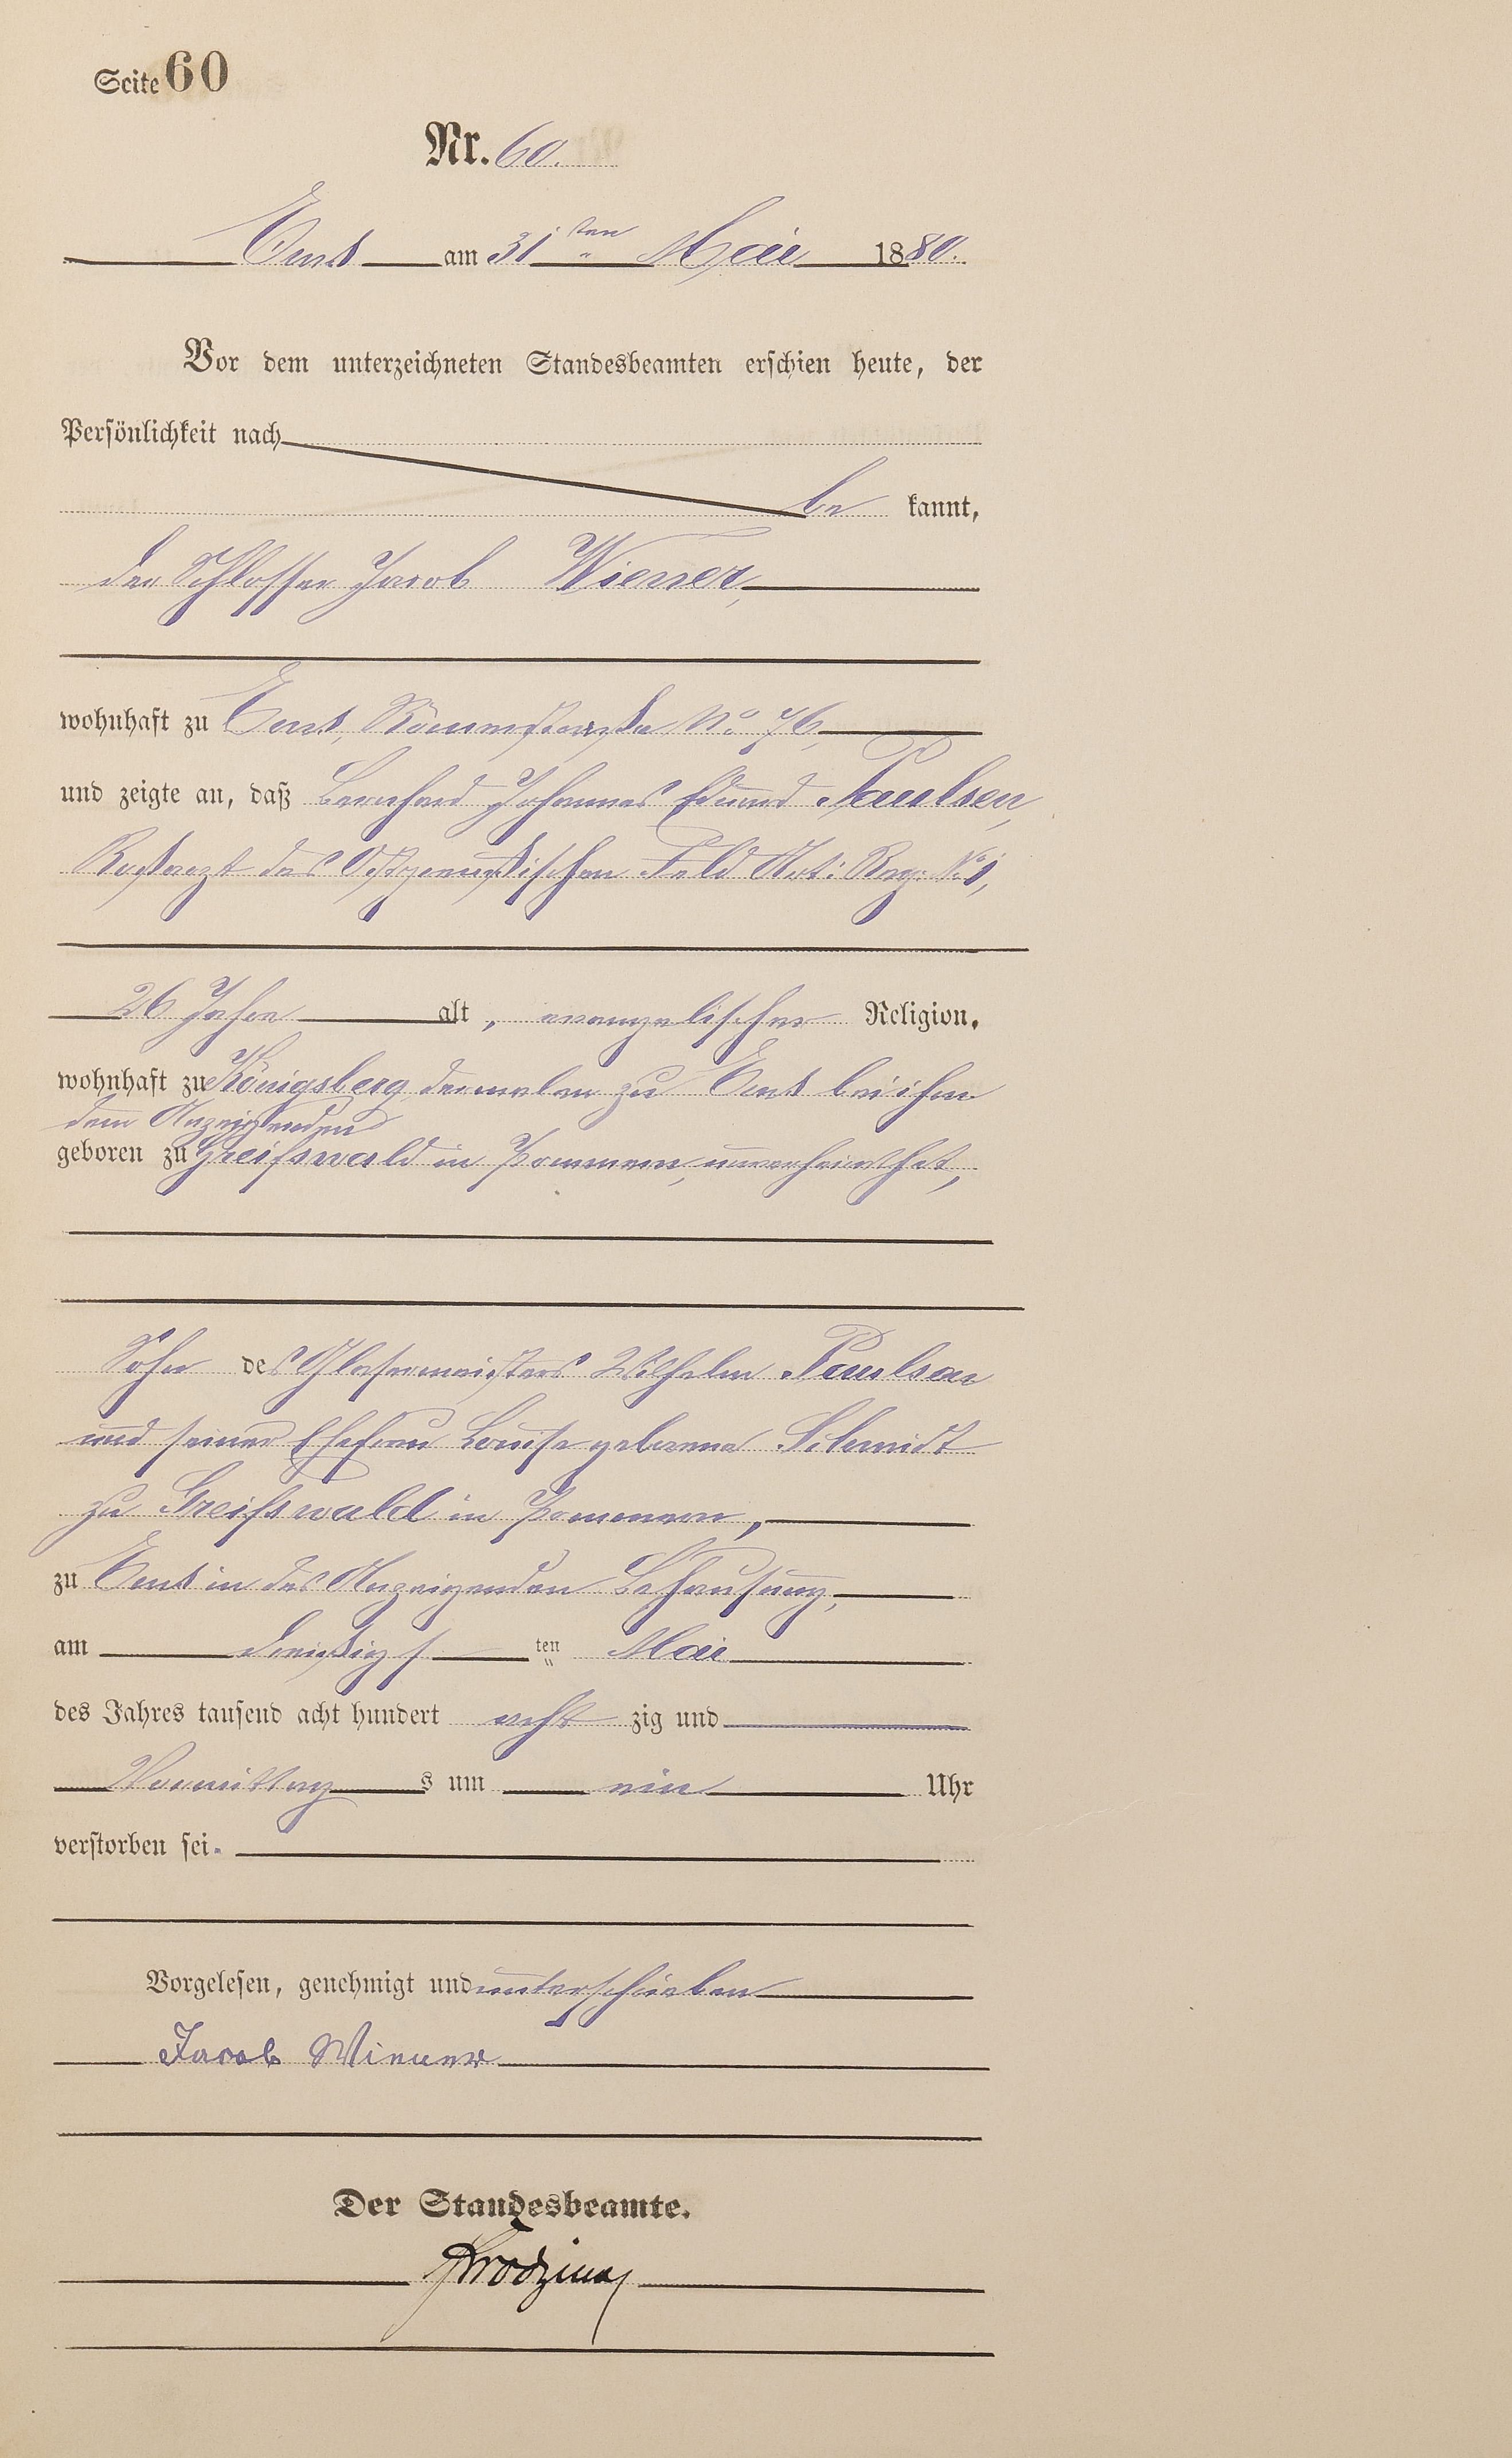 Seite 60
Nr. 60.
Ems am 31ten Mai 1880.
Vor dem unterzeichneten Standesbeamten erschien heute, der
Persönlichkeit nach
be kannt,
der Schlosser Jacob Wiener,
wohnhaft zu Ems, Römerstraße No. 76,
und zeigte an, daß Bernhard Johannes Eduard Paulsen,
Roßarzt des Ostpreußischen Feld Art: Reg: No 1,
26 Jahre alt, evangelischer Religion,
wohnhaft zu Königsberg, dermalen zu Ems bei ihm
dem Anzeigenden
geboren zu Greifswald in Pommern, unverheirathet,
Sohn des Glasermeisters Wilhelm Paulsen
und seiner Ehefrau Louise geborene Schmidt
zu Greifswald in Pommern,
zu Ems in des Anzeigenden Behausung,
am dreißigs ten Mai
des Jahres tausend acht hundert acht zig und
Vormittag s um ein Uhr
verstorben sei.
Vorgelesen, genehmigt und unterschrieben
Jacob Wiener
Der Standesbeamte.